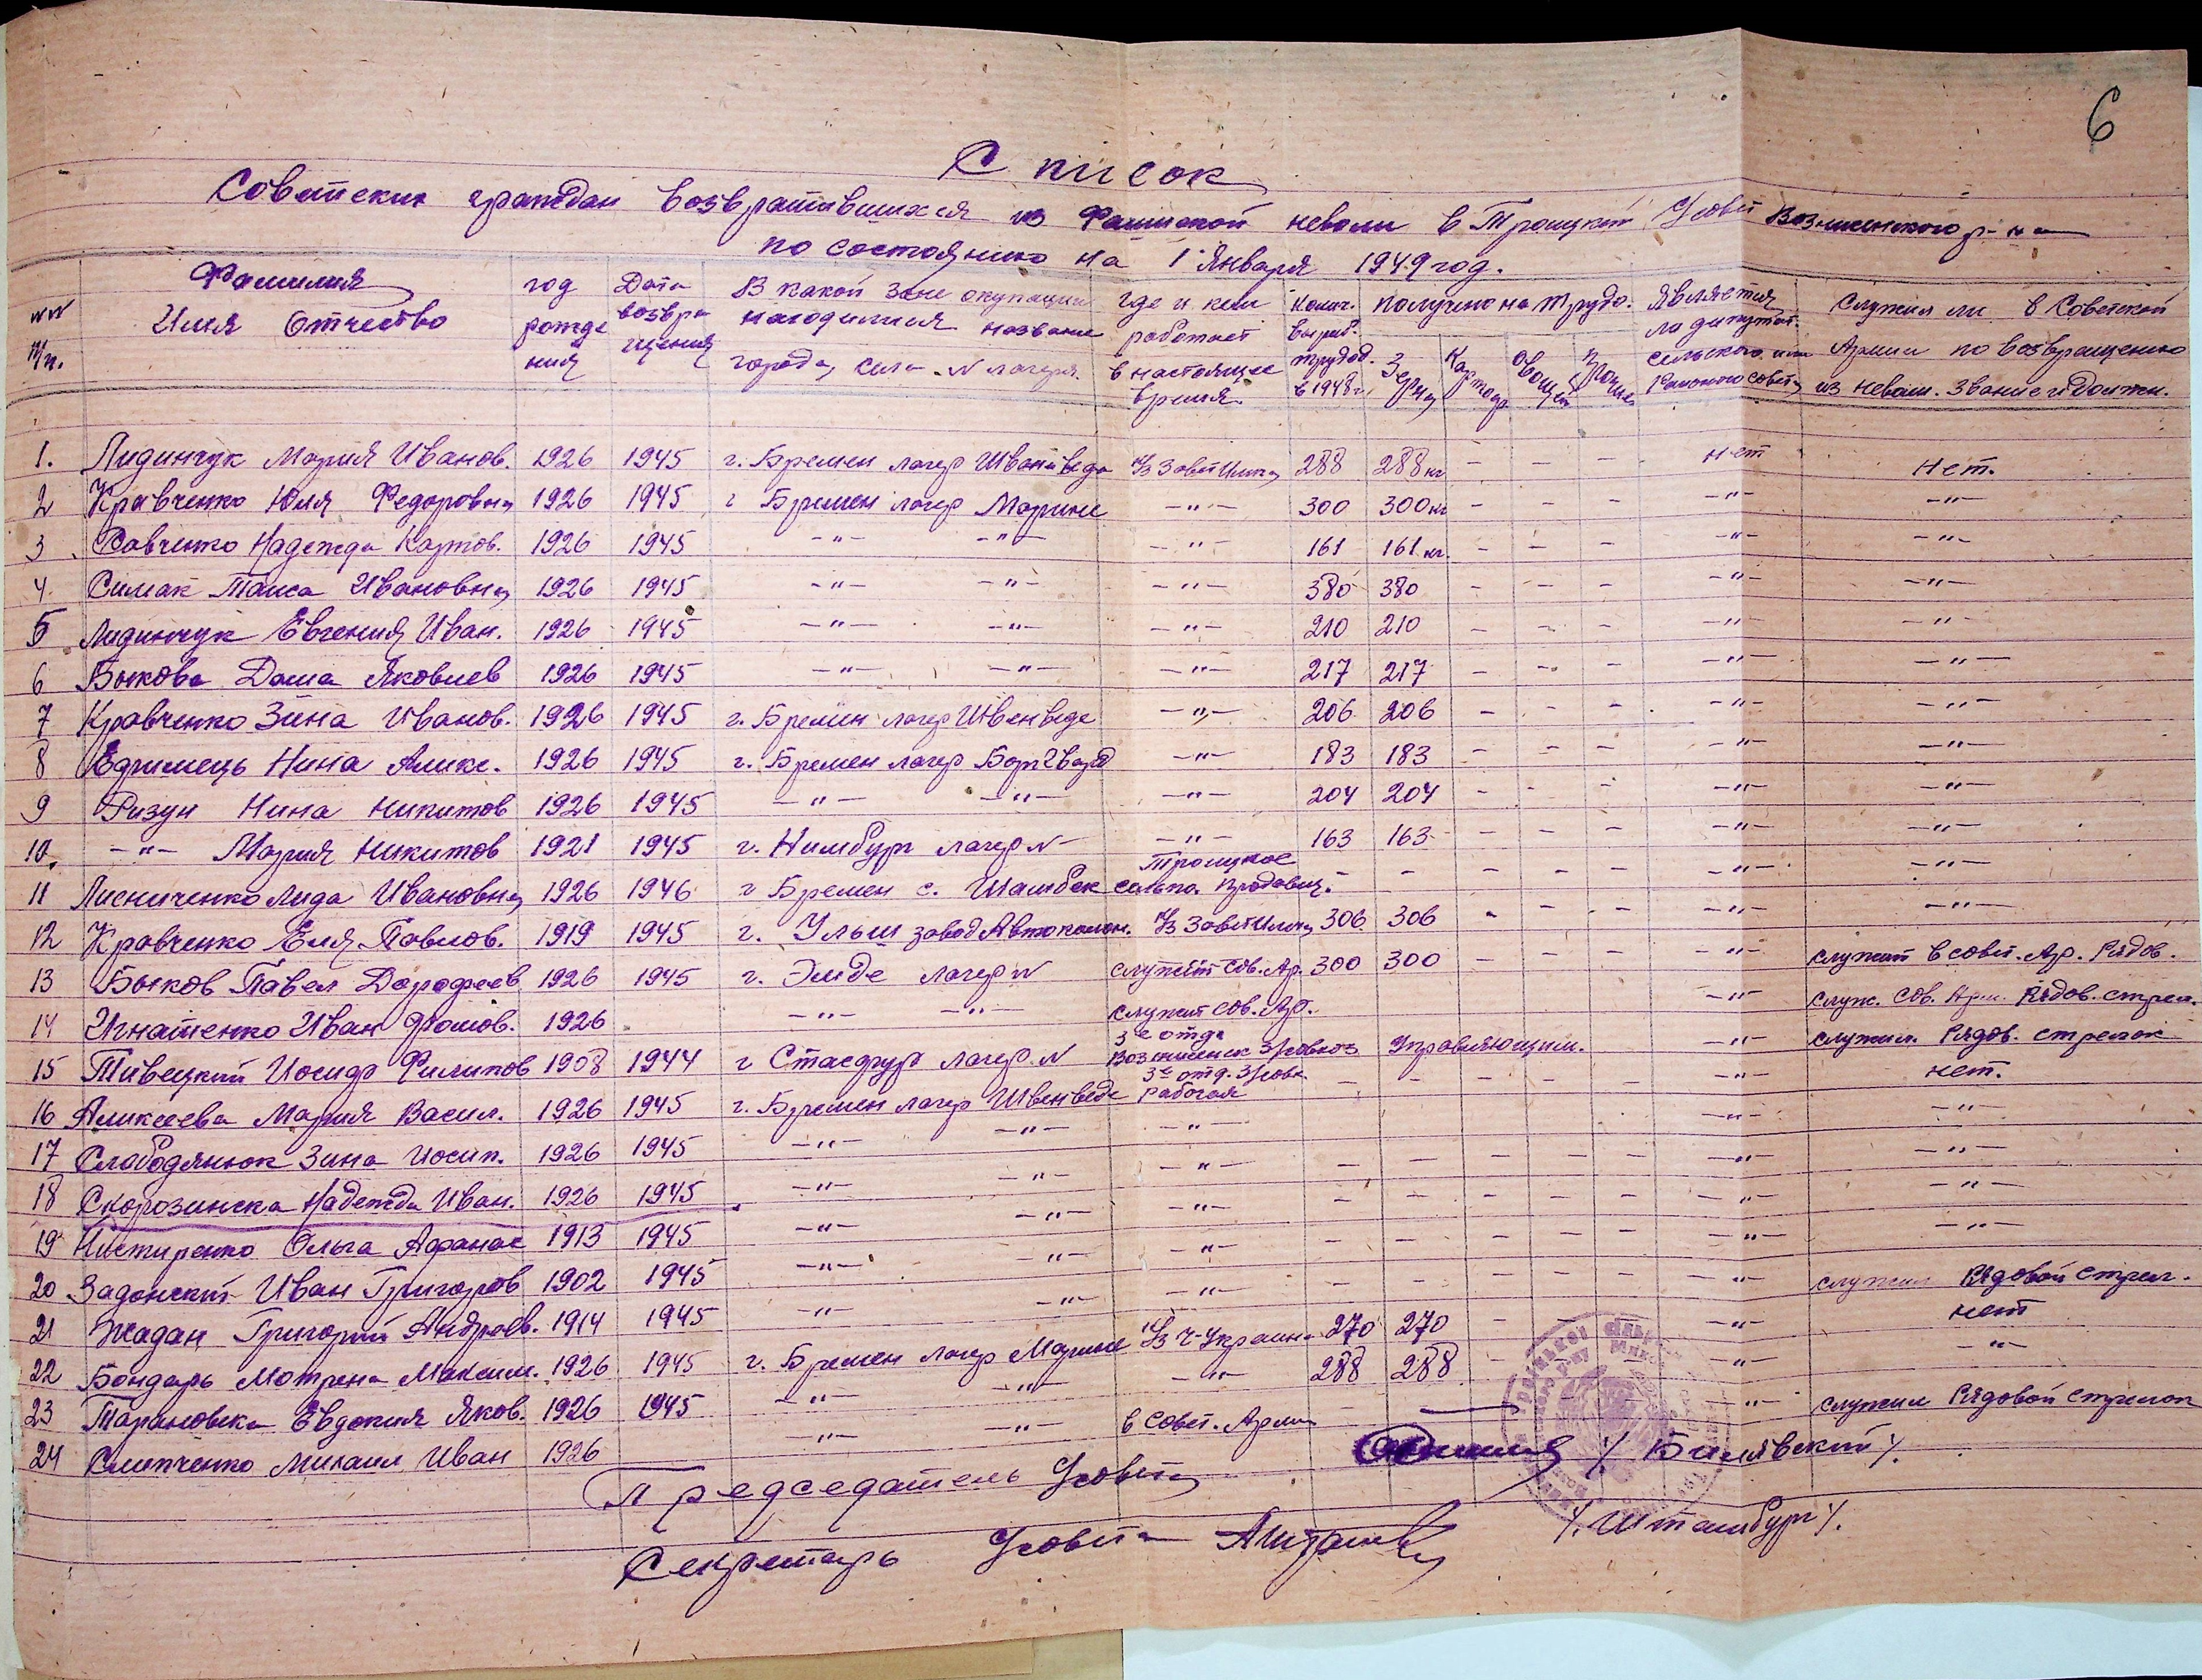 6
Список
Советских граждан возвратившихся из Фашисткой неволи в Троицкий С/совет Вознисенского р-на
по состоянию на 1 Января 1949 год.
№№ п/п. Фамилия Имя Отчество год рождения Дата возвращения В какой зоне окупации находимися название города, села - № лагеря. Где и кем работает в настоящее время. Колич. выраб. трудод. в 1948 г. Получено на трудо. Зерна Картоф. Овощей Прочие Является ли дипутат. сельского или Районого совета Служил ли в Советской Армии по возвращению из неволи. Звание и должн.
1. Лидинчук Мария Иванов. 1926 1945 г. Бремен лагер Шванведа К/з Завет Илича 288 288 кг - - - нет Нет.
2 Кравченко Юля Федоровна 1926 1945 г Бремен лагер Марине -"- 300 300 кг - - - -"- -"-
3 Савченко Надежда Карпов. 1926 1945 -"- -"- -"- 161 161 кг. - - - -"- -"-
4. Симак Таиса Ивановна 1926 1945 -"- -"- -"- 380 380 - - - -"- -"-
5 Лидинчук Евгения Иван. 1926 1945 -"- -"- -"- 210 210 - - - -"- -"-
6 Быкова Даша Яковлев 1926 1945 -"- -"- -"- 217 217 - - - -"- -"-
7 Кравченко Зина Иванов. 1926 1945 г. Бремен лагер Швенведе -"- 206 206 - - - -"- -"-
8 Едримець Нина Алике. 1926 1945 г. Бремен лагер Боргвард -"- 183 183 - - - -"- -"-
9 Ризун Нина Никитов 1926 1945 -"- -"- -"- 204 204 - - - -"- -"-
10. -"- Мария Никитов 1921 1945 г. Нимбург лагер № -"- 163 163 - - - -"- -"-
11 Лисниченко Лида Ивановна 1926 1946 г Бремен с. Шамбек Троицкое сельпо. продавец. - - - - - -"- -"-
12 Кравченко Еля Павлов. 1919 1945 г. Ульм завод Автоколон. К/з Завет Илича 306 306 - - - -"- -"-
13 Быков Павел Дорофеев 1926 1945 г. Эмде лагер № служит Сов. Ар. 300 300 - - - -"- служит в совет. Ар. Рядов.
14 Игнатенко Иван Фомов. 1926 -"- -"- служит Сов. Ар. -"- служ. Сов. Арм. Рядов. стрел.
15 Тивецкий Иосиф Филипов 1908 1944 г Стасфурт лагер № 3е отд. Вознисенск З/совхоз Управляющим. -"- служил Рядов. стрелок
16 Аликсеева Мария Васил. 1926 1945 г. Бремен лагер Швенведе 3е отд. З/совх. рабогая - - - - - -"- нет.
17 Слободянюк Зина Иосип. 1926 1945 -"- -"- -"- -"- -"-
18 Скорозинска Надежда Иван. 1926 1945 -"- -" -"- - - - - - -"- -"-
19 Нистиренко Ольга Афанас 1913 1945 -"- -"- -"- - - - - - -"- -"-
20 Задонский Иван Григоров 1902 1945 -"- "- -"- - - - - - -"- -"-
21 Жадан Григорий Андреев. 1914 1945 -"- -"- -"- - - - - - -"- служил Рядовой стрел.
22 Бондарь Мотрена Максим. 1926 1945 г. Бремен лагер Марине К/з Ч-Украина 270 270 - - - -"- нет
23 Тарановска Евдокия Яков. 1926 1945 -"- -"- -"- 288 288 - - -"- -"-
24 Слипченко Михаил Иван 1926 -"- -"- в Совет. Армии -"- служил Рядовой стрелок
Председатель С/совета /. Билявский /.
Секретарь С/совета /. Штамбург /.